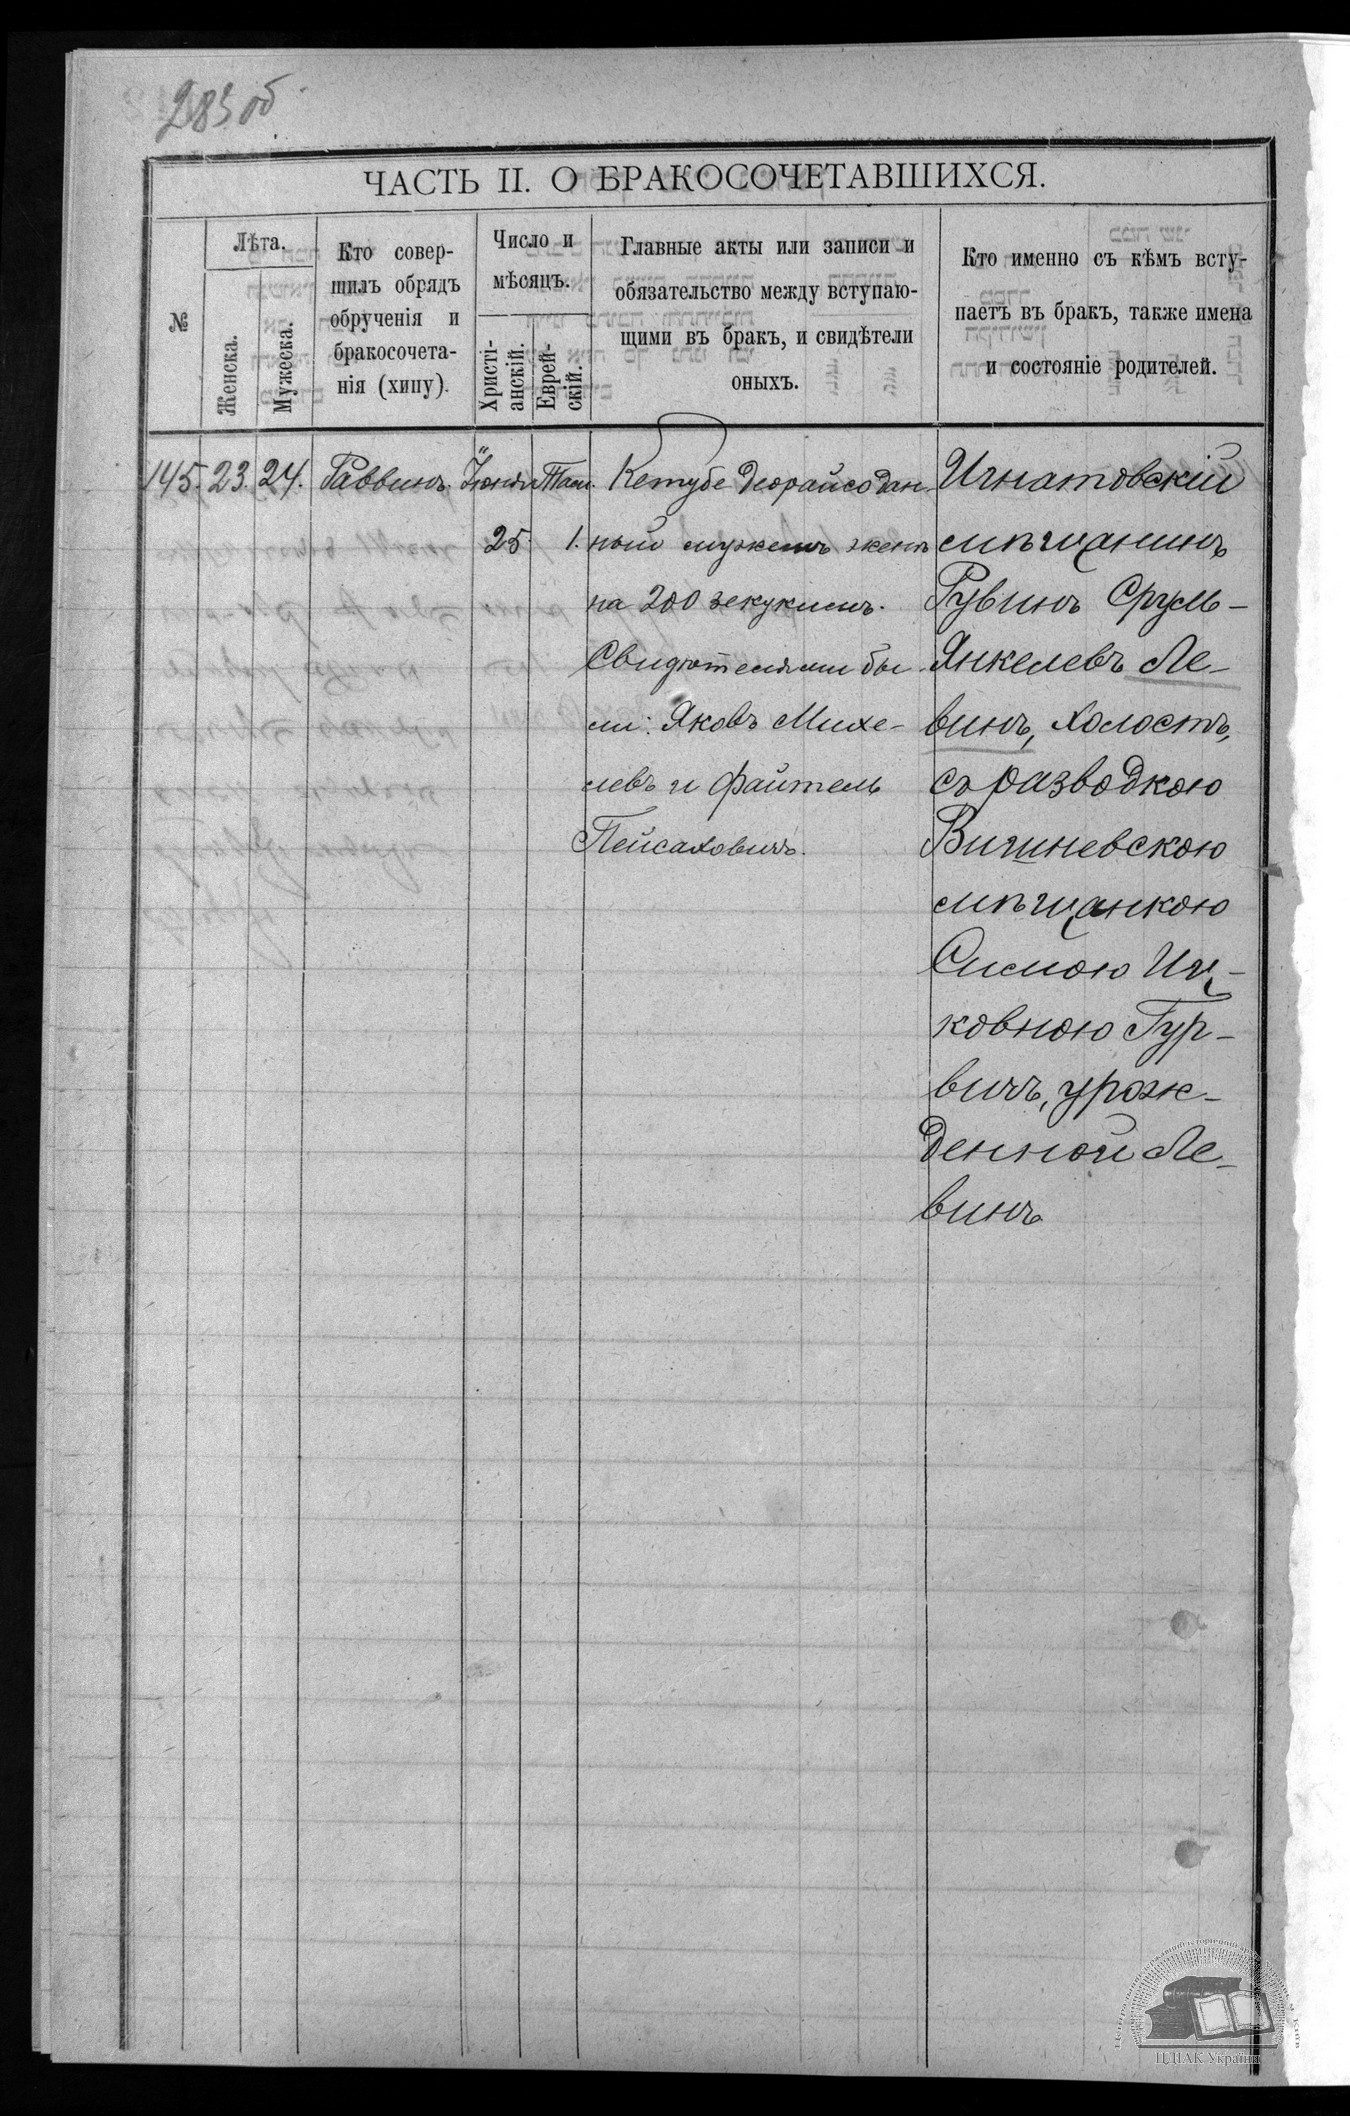 283 об
ЧАСТЬ II. О БРАКОСОЧЕТАВШИХСЯ.
№
Лѣта.
Женска.
Мужеска.
Кто совер-
шилъ обрядъ
обрученія и
бракосочета-
нія (хипу).
Число и
мѣсяцъ.
Христі-
анскій.
Еврей-
скій.
Главные акты или записи и
обязательство между вступаю-
щими въ бракъ, и свидѣтели
оныхъ.
Кто именно съ кѣмъ всту-
паетъ въ бракъ, также имена
и состояніе родителей.
145.
23.
24.
Раввинъ.
Іюня
25
Там.
1.
Кетубе деорайсо дан
ной мужемъ женѣ
на 200 зекукимъ.
Свидѣтелями бы
ли: Яковъ Михе-
левъ и Файтель
Пейсаховичъ.
Игнатовскій
мѣщанинъ
Рувинъ Сруль-
Янкелевъ Ле-
винъ, холостъ,
съ разводкою
Вишневскою
мѣщанкою
Симою Иц-
ковною Гур-
вичъ, урож-
денной Ле-
винъ
ЦДІАК України